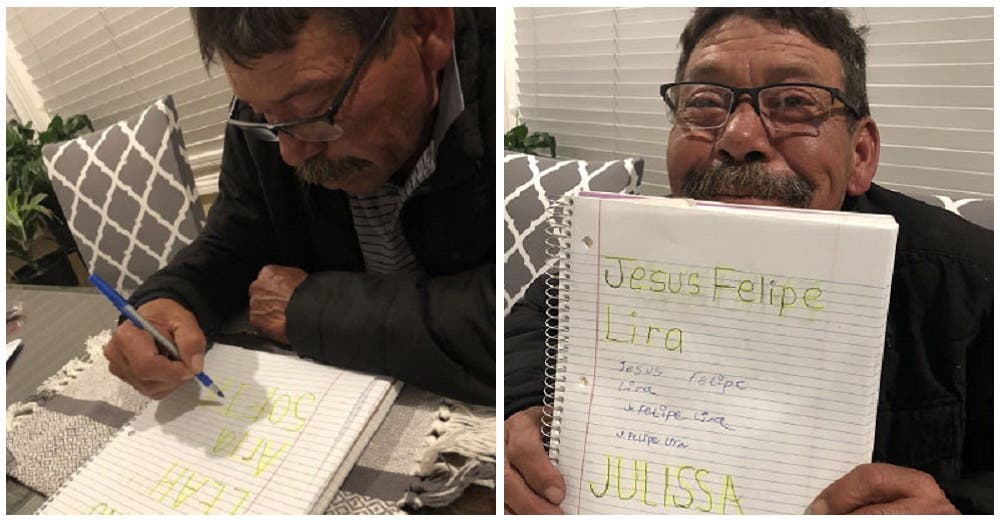 SOFI
Aria
LEAH
Jesus Felipe
Lira
Jesus Felipe
Lira
J. Felipe Lira
J. Felipe Lira
JULISSA